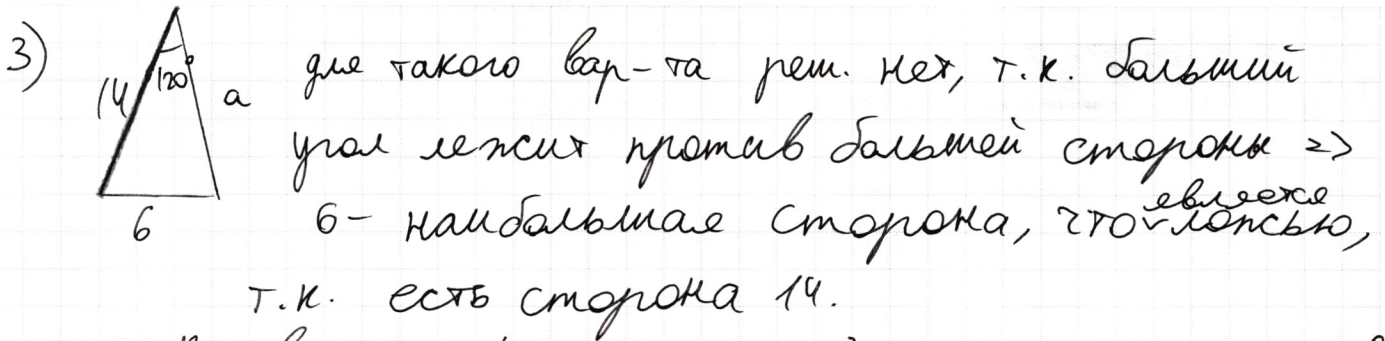 3) 14 120° a для такого вар-та реш. нет, т.к. больший
угол лежит против большей стороны =>
6 6 - наибольшая сторона, что является ложью,
т.к. есть сторона 14.